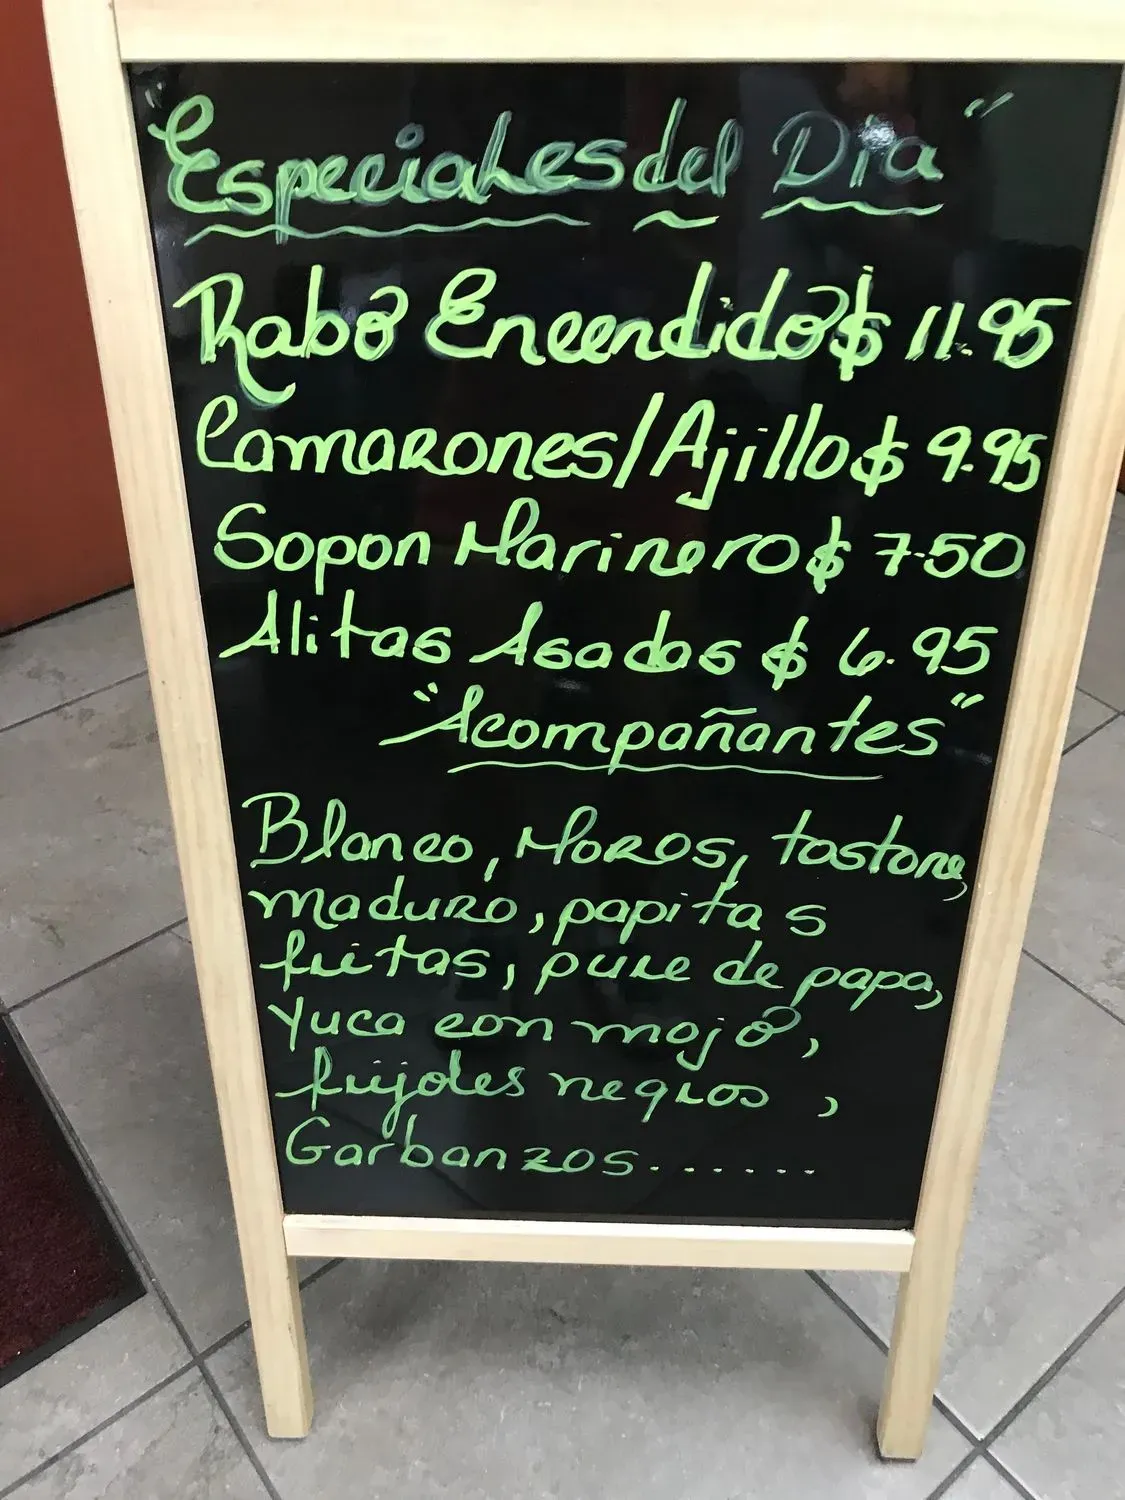 "Especiales del Dia"
Rabo Encendido $ 11.95
Camarones/Ajillo $ 9.95
Sopon Marinero $ 7.50
Alitas Asadas $ 6.95
"Acompañantes"
Blanco, Moros, tostone,
maduro, papitas
fritas, pure de papa,
Yuca con mojo,
frijoles negros,
Garbanzos.......